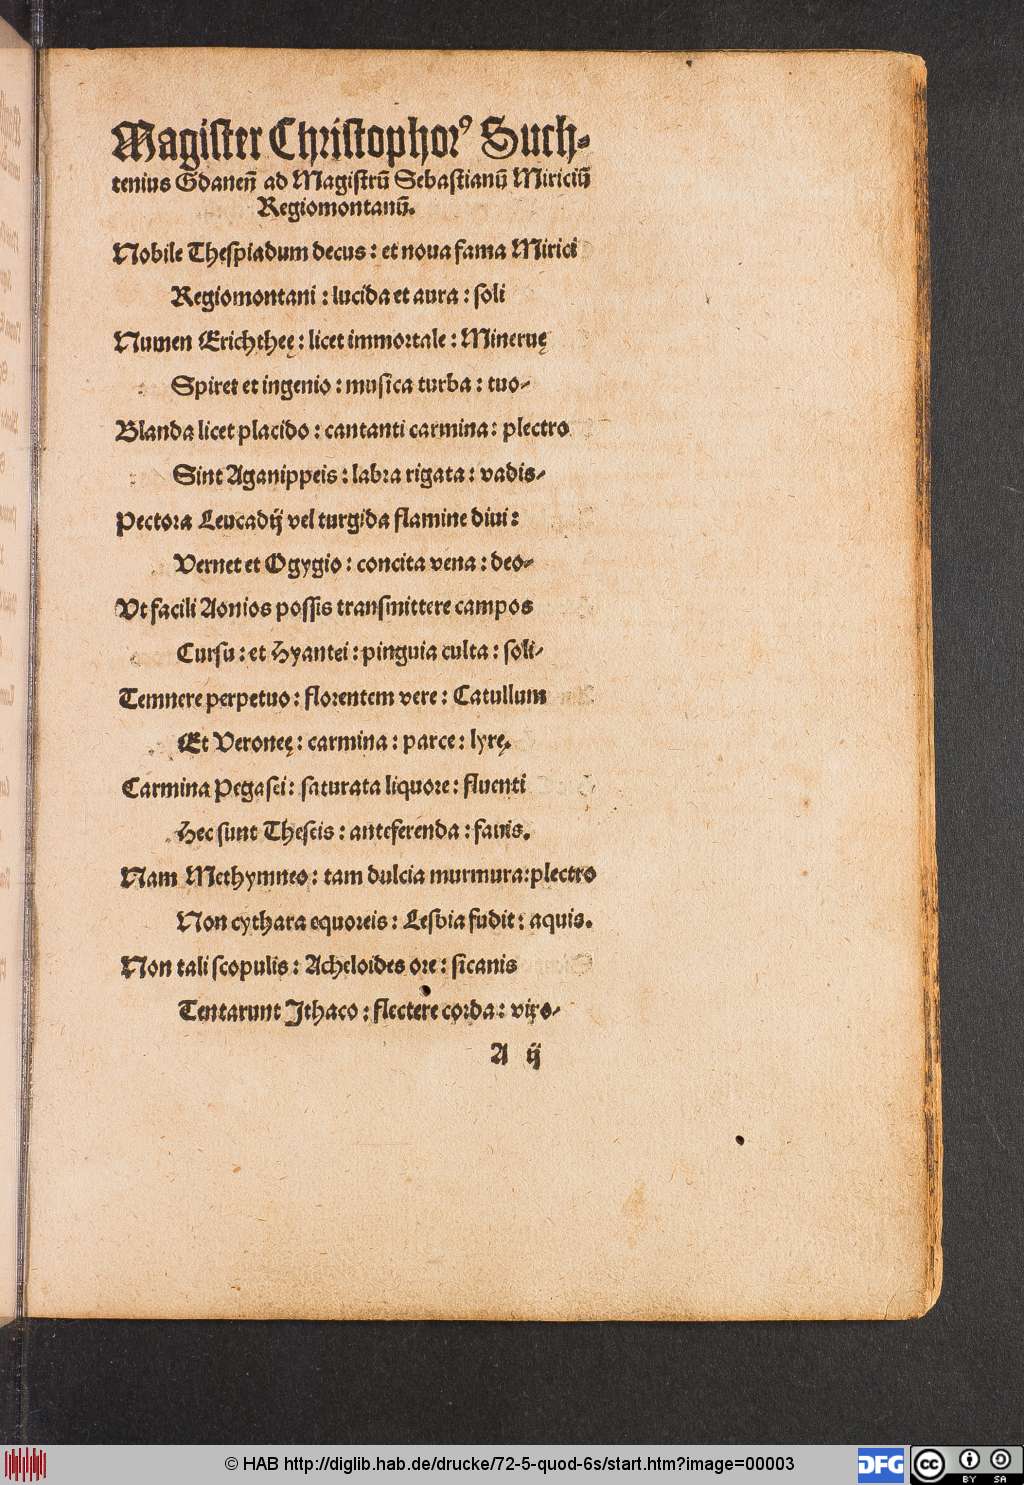 Magister Christophorꝰ Such⸗
tenius Gdaneñ ad Magistrū Sebastianū Miriciū
Regiomontanū.
Nobile Thespiadum decus : et noua fama Mirici
Regiomontani : lucida et aura : soli
Numen Erichtheę : licet immortale : Mineruę
Spiret et ingenio : musica turba : tuo⸗
Blanda licet placido : cantanti carmina : plectro
Sint Aganippeis : labra rigata : vadis⸗
Pectora Leucadij vel turgida flamine diui :
Vernet et Ogygio : concita vena : deo⸗
Vt facili Aonios possis transmittere campos
Cursu : et Hyantei : pinguia culta : soli⸗
Temnere perpetuo : florentem vere : Catullum
Et Veroneę : carmina : parce : lyrę.
Carmina Pegasei : saturata liquore : fluenti
Hec sunt Theseis : anteferenda : fauis.
Nam Methymneo : tam dulcia murmura : plectro
Non cythara equoreis : Lesbia fudit : aquis.
Non tali scopulis : Acheloides ore : sicanis
Tentarunt Ithaco : flectere corda : viro⸗
A ij
© HAB http://diglib.hab.de/drucke/72-5-quod-6s/start.htm?image=00003
DFG
cc BY SA